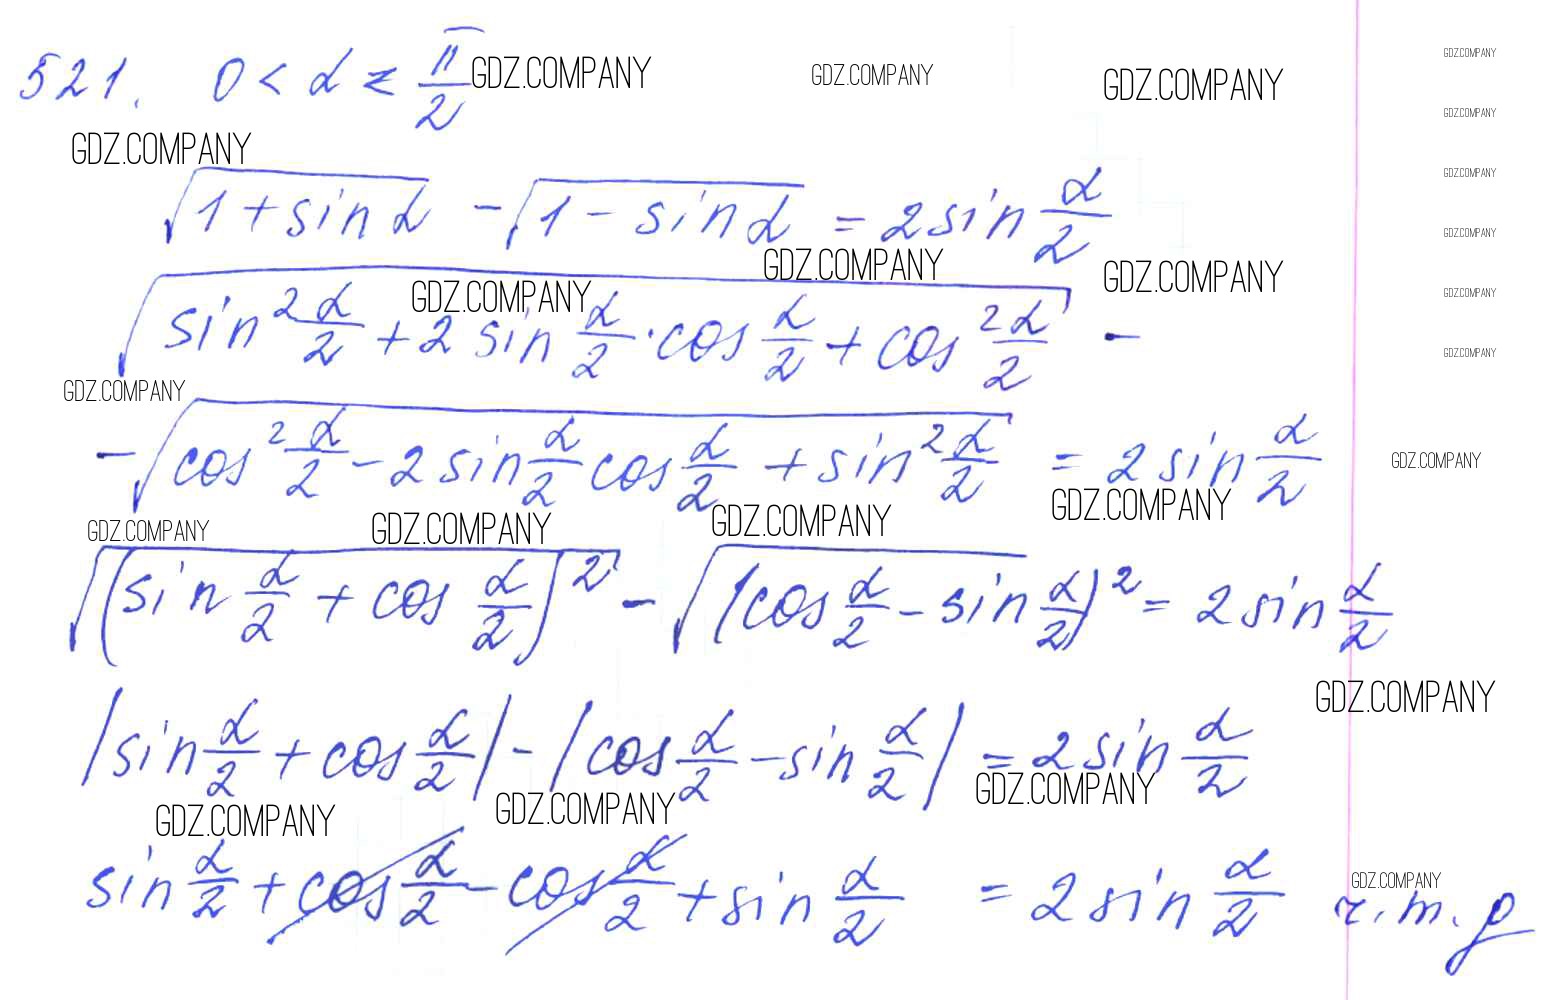 521. 0 < α < π/2 GDZ.COMPANY GDZ.COMPANY GDZ.COMPANY GDZ.COMPANY
GDZ.COMPANY
GDZ.COMPANY
GDZ.COMPANY
√(1 + sin α) - √(1 - sin α) = 2 sin α/2
GDZ.COMPANY
GDZ.COMPANY GDZ.COMPANY
GDZ.COMPANY GDZ.COMPANY
√(sin² α/2 + 2 sin α/2 · cos α/2 + cos² α/2) -
GDZ.COMPANY
GDZ.COMPANY
- √(cos² α/2 - 2 sin α/2 cos α/2 + sin² α/2) = 2 sin α/2
GDZ.COMPANY
GDZ.COMPANY
GDZ.COMPANY GDZ.COMPANY GDZ.COMPANY
√((sin α/2 + cos α/2)²) - √((cos α/2 - sin α/2)²) = 2 sin α/2
GDZ.COMPANY
|sin α/2 + cos α/2| - |cos α/2 - sin α/2| = 2 sin α/2
GDZ.COMPANY GDZ.COMPANY GDZ.COMPANY
sin α/2 + cos α/2 - cos α/2 + sin α/2 = 2 sin α/2 ч.т.д
GDZ.COMPANY